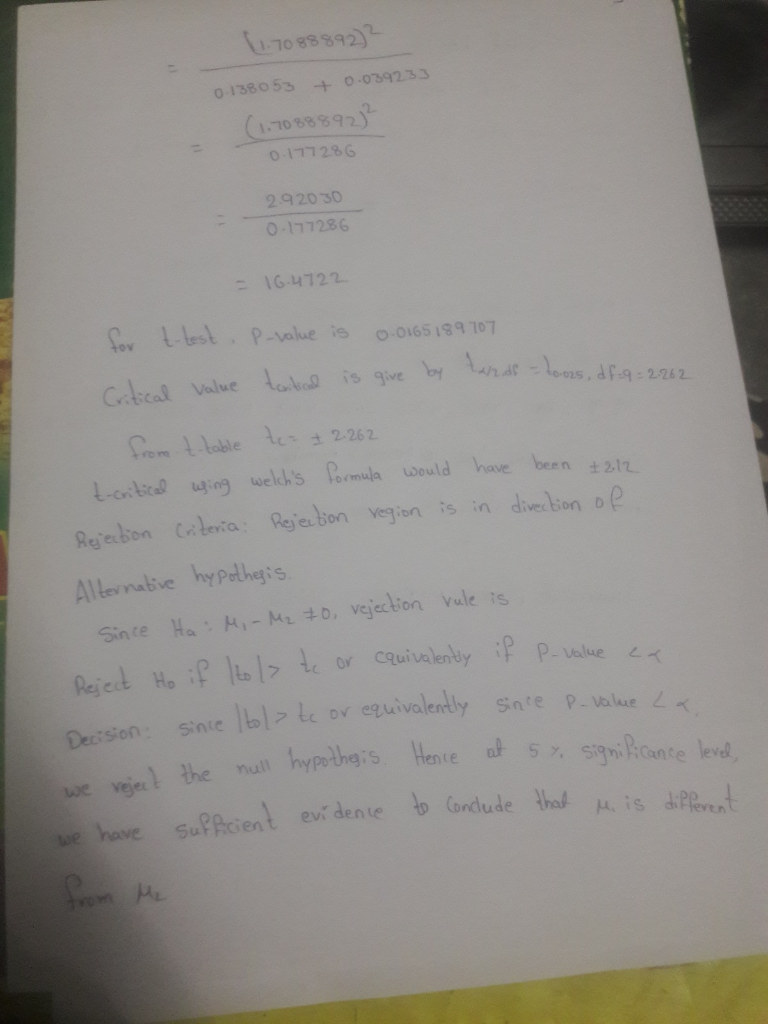 = (1.7088892)² / 0.138053 + 0.039233
= (1.7088892)² / 0.177286
= 2.92030 / 0.177286
= 16.4722
for t-test, P-value is 0.0165189707
Critical value tcritical is give by tα/2, df = t0.025, df=9 = 2.262
from t-table tc = ± 2.262
t-critical using welch's formula would have been ± 2.12
Rejection Criteria: Rejection region is in direction of
Alternative hypothesis.
Since Ha : μ1 - μ2 ≠ 0, rejection rule is
Reject Ho if |to| > tc or equivalently if P-value < α
Decision: since |to| > tc or equivalently since P-value < α,
we reject the null hypothesis. Hence at 5 % significance level,
we have sufficient evidence to conclude that μ1 is different
from μ2